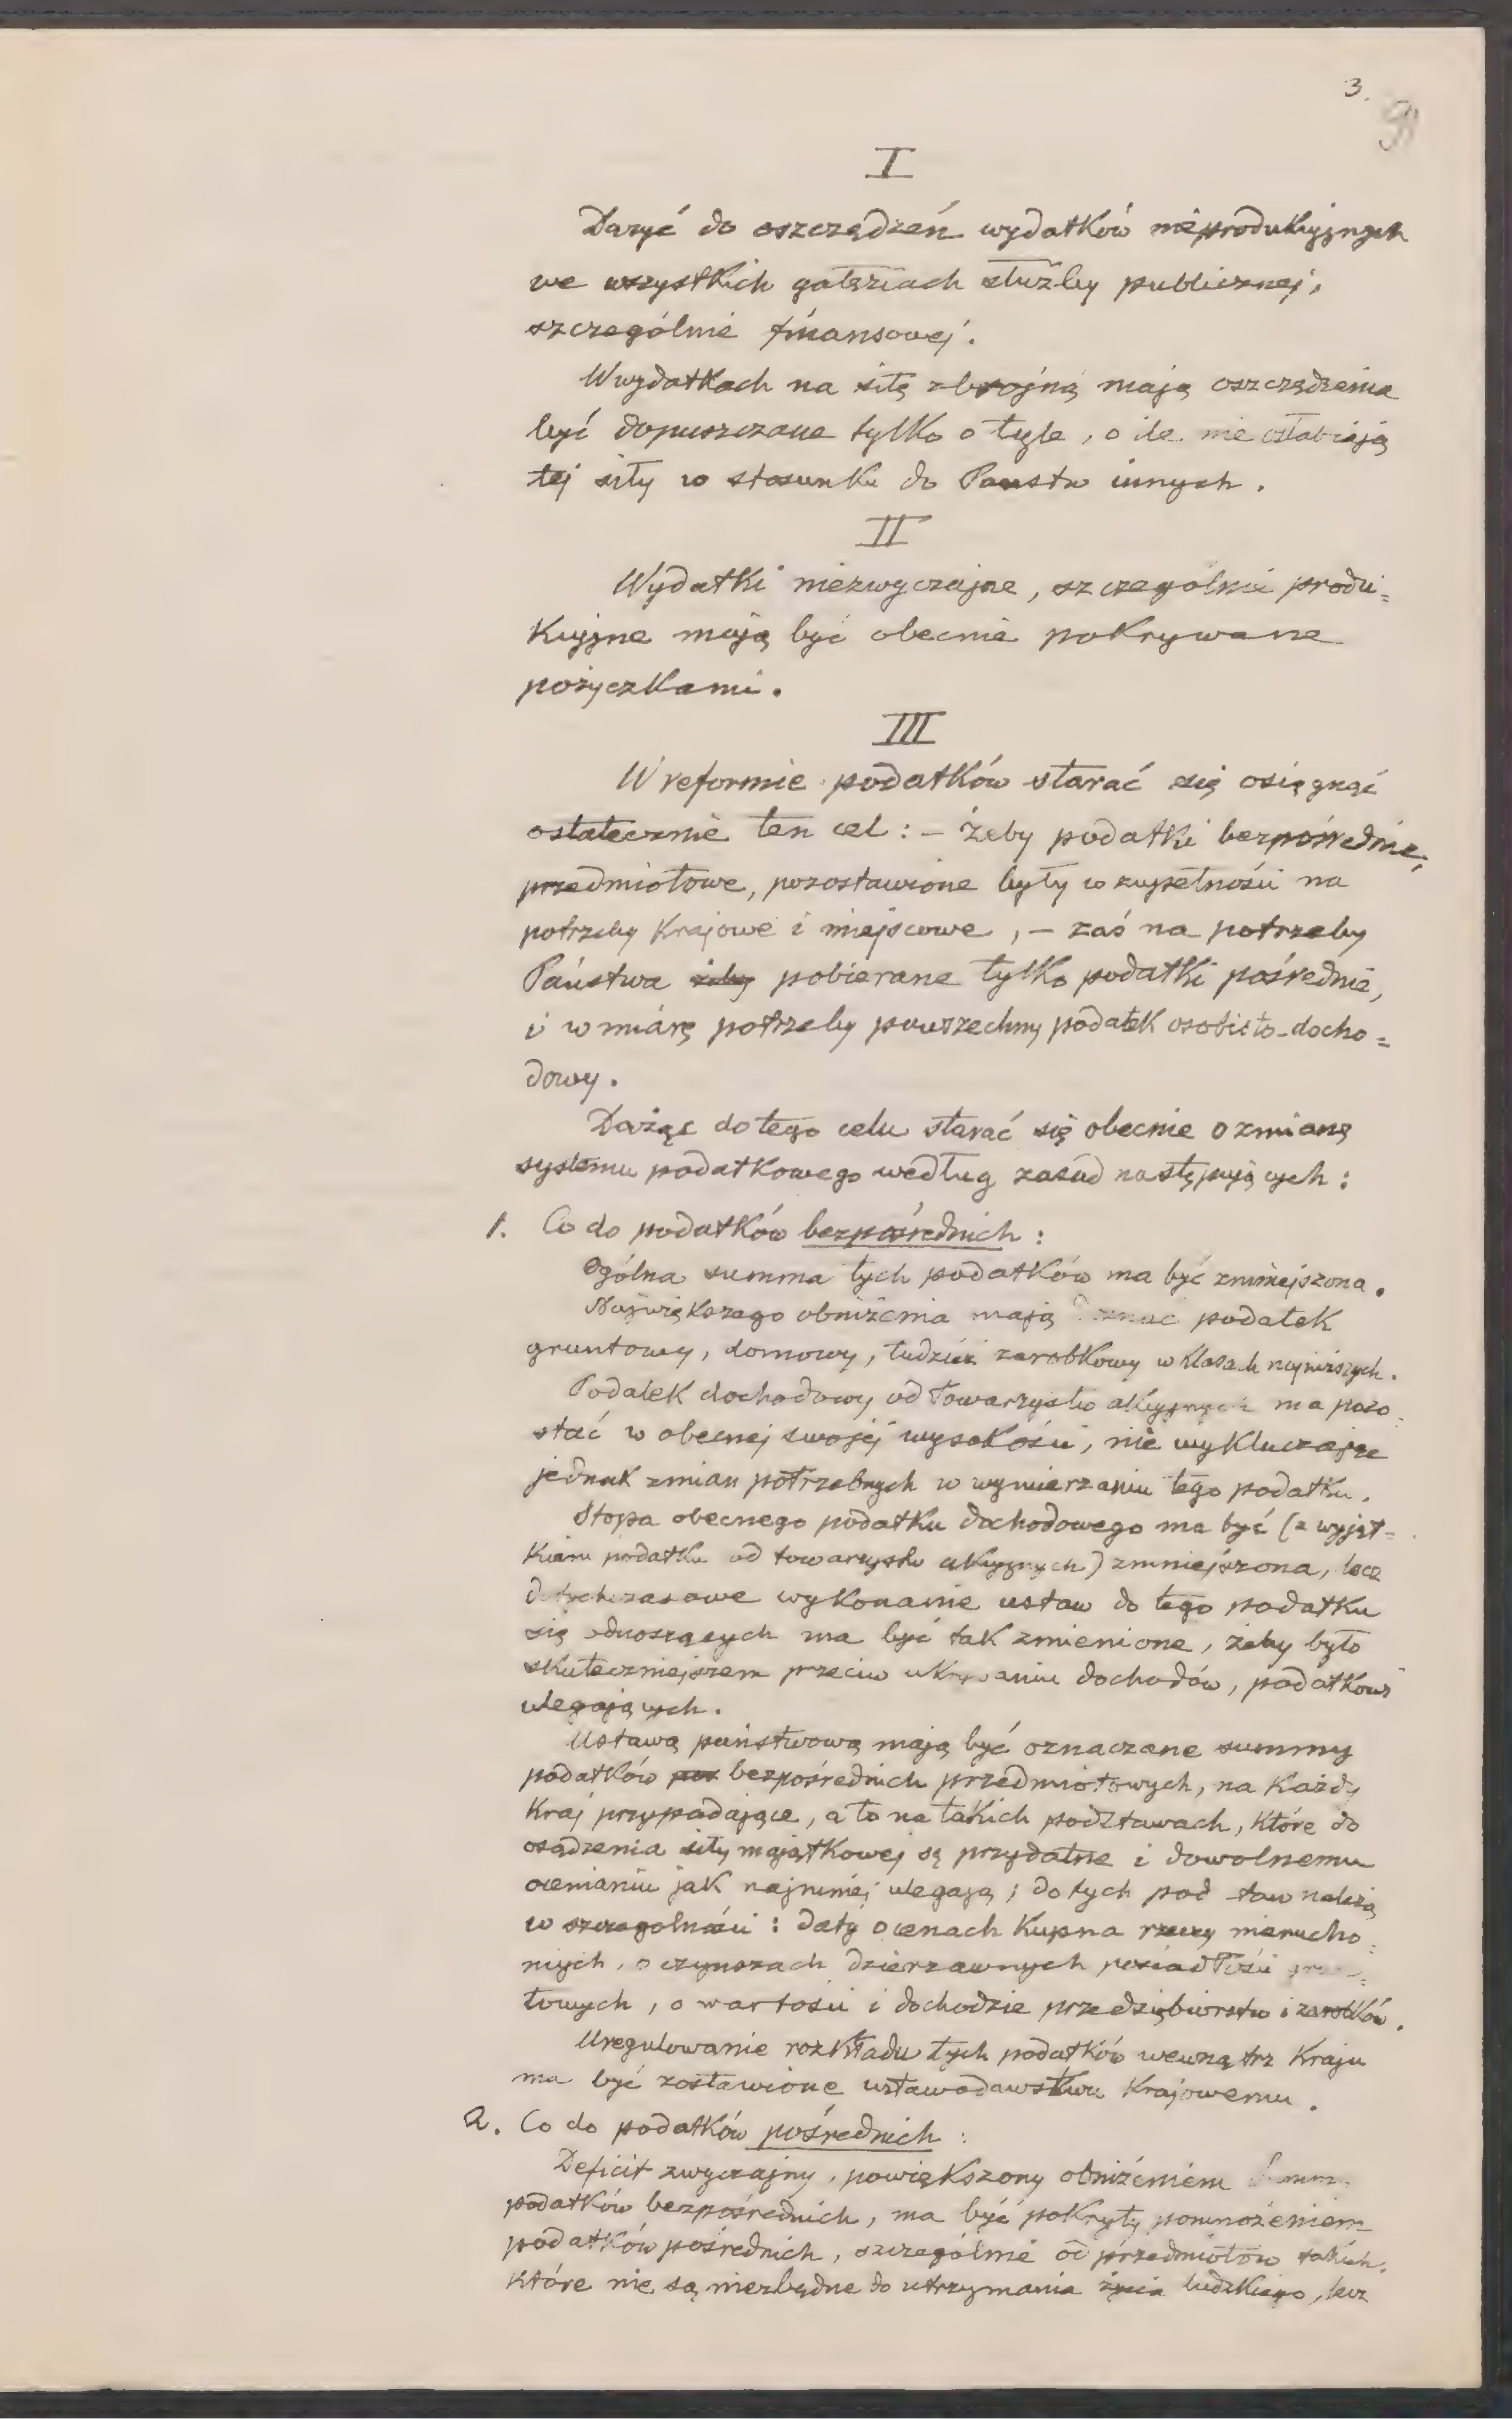 3.
I
Dążyć do oszczędzeń wydatków nieprodukcyjnych
we wszystkich gałęziach służby publicznej,
szczególnie finansowej.
W wydatkach na siłę zbrojną mają oszczędzenia
być dopuszczane tylko o tyle, o ile nie osłabiają
tej siły w stosunku do Państw innych.
II
Wydatki niezwyczajne, szczególnie produ=
kcyjne mają być obecnie pokrywane
pożyczkami.
III
W reformie podatków starać się osiągnąć
ostatecznie ten cel: – żeby podatki bezpośrednie,
przedmiotowe, pozostawione były w zupełności na
potrzeby krajowe i miejscowe, – zaś na potrzeby
Państwa żeby pobierane tylko podatki pośrednie,
i w miarę potrzeby powszechny podatek osobisto-docho=
dowy.
Dążąc do tego celu starać się obecnie o zmianę
systemu podatkowego według zasad następujących:
1. Co do podatków bezpośrednich:
Ogólna summa tych podatków ma być zmniejszona.
Największego obniżenia mają doznać podatek
gruntowy, domowy, tudzież zarobkowy w klasach najniższych.
Podatek dochodowy od Towarzystw akcyjnych ma pozo=
stać w obecnej swojej wysokości, nie wykluczając
jednak zmian potrzebnych w wymierzaniu tego podatku.
Stopa obecnego podatku dochodowego ma być (z wyjąt=
kiem podatku od towarzystw akcyjnych) zmniejszona, lecz
dotychczasowe wykonanie ustaw do tego podatku
się odnoszących ma być tak zmienione, żeby było
skuteczniejszem przeciw ukrywaniu dochodów, podatkowi
ulegających.
Ustawą państwową mają być oznaczane summy
podatków bezpośrednich przedmiotowych, na każdy
Kraj przypadające, a to na takich podstawach, które do
osądzenia siły majątkowej są przydatne i dowolnemu
ocenianiu jak najmniej ulegają; do tych podstaw należą
w szczególności: daty o cenach kupna rzeczy nierucho=
mych, o czynszach dzierżawnych posiadłości grun=
towych, o wartości i dochodzie przedsiębiorstw i zarobków.
Uregulowanie rozkładu tych podatków wewnątrz Kraju
ma być zostawione ustawodawstwu Krajowemu.
2. Co do podatków pośrednich:
Deficit zwyczajny, powiększony obniżeniem summy
podatków bezpośrednich, ma być pokryty pomnożeniem
podatków pośrednich, szczególnie od przedmiotów takich,
które nie są niezbędne do utrzymania życia ludzkiego, lecz